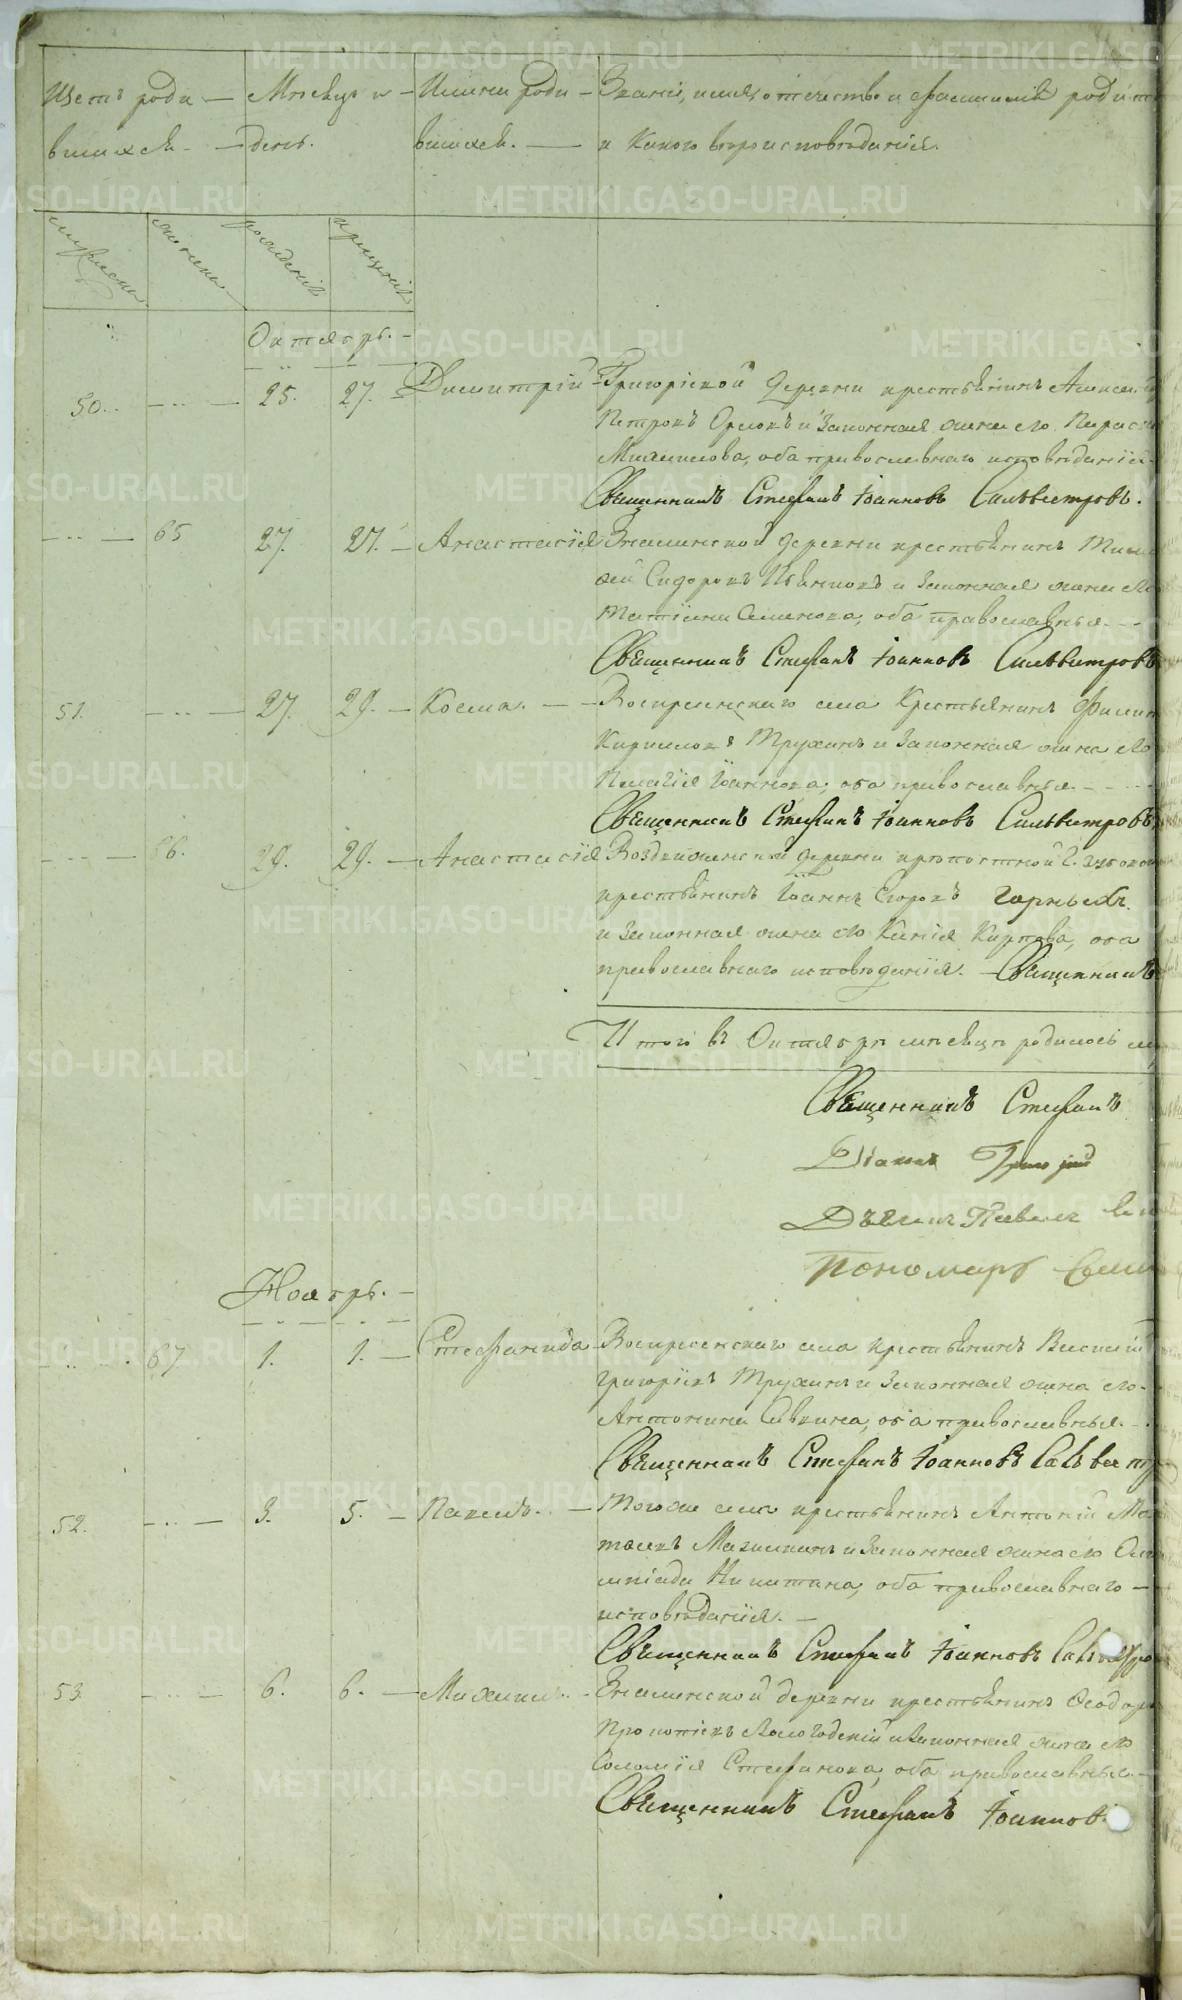 Щетъ роди — Месяцъ и — Имена роди — Званіе, имя, отечество и фамилія родит
вшихся. — день. вшихся. — и какого вероисповѣданія.
мужеска женска рожденія крещенія
Октябрь. —
50. — 25. 27. Димитрій — Григорьской деревни крестьянинъ Алексей
Петровъ Орловъ и законная жена его Параск
Михаилова, оба православнаго исповѣданія.
Священникъ Стефанъ Іоанновъ Сильвестровъ.
— 65 27. 27. — Анастасія Знаменской деревни крестьянинъ Тимо
фей Сидоровъ и законная жена его
Татіяна Семенова, оба православныя. —
Священникъ Стефанъ Іоанновъ Сильвестровъ
51. — 27. 29. — Косма. — Воскресенскаго села Крестьянинъ Филип
Кириловъ Трухинъ и законная жена его
Пелагія Іоаннова, оба православныя. —
Священникъ Стефанъ Іоанновъ Сильвестровъ
— 66. 29. 29. — Анастасія Воздвиженской деревни крепостной Г.
крестьянинъ Іоаннъ Егоровъ
и законная жена его Ксенія Карпова, оба
православнаго исповѣданія. — Священникъ
Итого въ Октябрѣ месяцѣ родилось м
Священникъ Стефанъ
Діаконъ Григорій
Дьячекъ Павелъ
Пономарь
Ноябрь. —
67 1. 1. — Стефанида — Воскресенскаго села крестьянинъ Василій
Григоріевъ Трухинъ и законная жена его
Антонина Саввина, оба православныя. —
Священникъ Стефанъ Іоанновъ Сильвестр
52. — 3. 5. — Павелъ. — Тогоже села крестьянинъ Антоній Ма
твеевъ и законная жена его Оли
мпіада Никитина, оба православнаго —
исповѣданія. —
Священникъ Стефанъ Іоанновъ Сильвестро
53. — 6. 6. — Михаилъ. — Знаменской деревни крестьянинъ Феодоръ
Прокопіевъ Вологодскій и законная жена его
Соломія Стефанова, оба православныя. —
Священникъ Стефанъ Іоаннов
METRIKI.GASO-URAL.RU